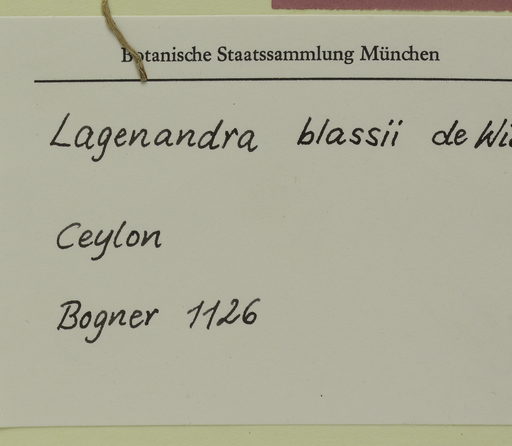 Botanische Staatssammlung München
Lagenandra blassii de
Ceylon
Bogner 1126